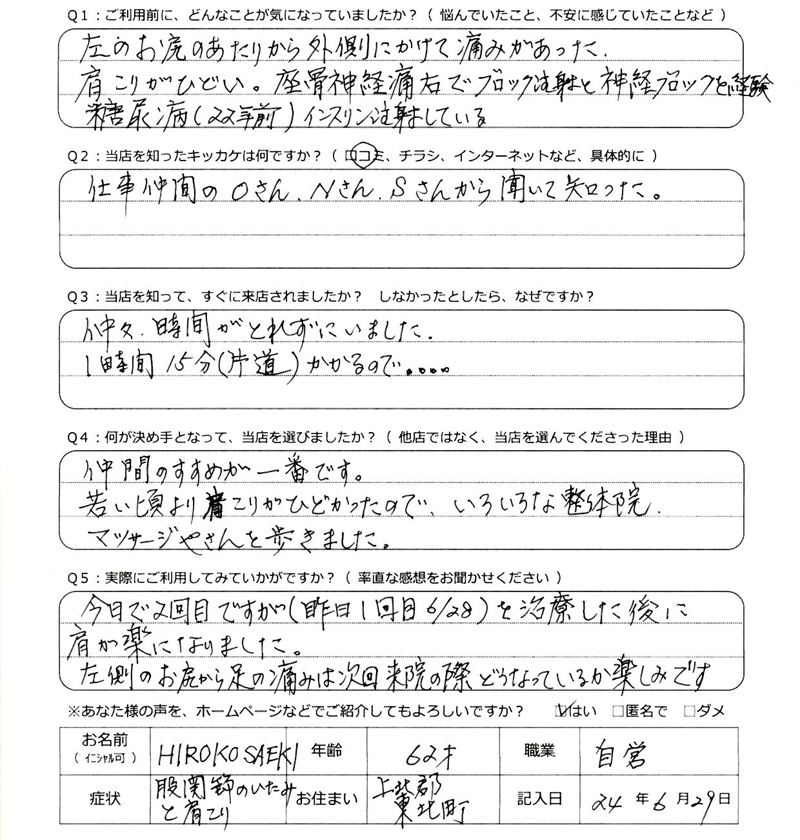 Q1：ご利用前に、どんなことが気になっていましたか？（ 悩んでいたこと、不安に感じていたことなど ）
左のお尻のあたりから外側にかけて痛みがあった.
肩こりがひどい。座骨神経痛右でブロック注射と神経ブロックを経験
糖尿病(22年前)インスリン注射している
Q2：当店を知ったキッカケは何ですか？（ 口コミ、チラシ、インターネットなど、具体的に ）
仕事仲間のOさん、Nさん、Sさんから聞いて知った。
Q3：当店を知って、すぐに来店されましたか？　しなかったとしたら、なぜですか？
仲々、時間がとれずにいました.
1時間15分(片道)かかるので....
Q4：何が決め手となって、当店を選びましたか？（ 他店ではなく、当店を選んでくださった理由 ）
仲間のすすめが一番です。
若い頃より肩こりがひどかったので、いろいろな整体院.
マッサージやさんを歩きました。
Q5：実際にご利用してみていかがですか？（ 率直な感想をお聞かせください ）
今日で2回目ですが(昨日1回目6/28)を治療した後に
肩が楽になりました。
左側のお尻から足の痛みは次回来院の際どうなっているか楽しみです
※あなた様の声を、ホームページなどでご紹介してもよろしいですか？　☑はい　□匿名で　□ダメ
お名前（ イニシャル可 ） HIROKO SAEKI 年齢 62才 職業 自営
症状 股関節のいたみと肩こり お住まい 上北郡東北町 記入日 24 年 6 月 29 日